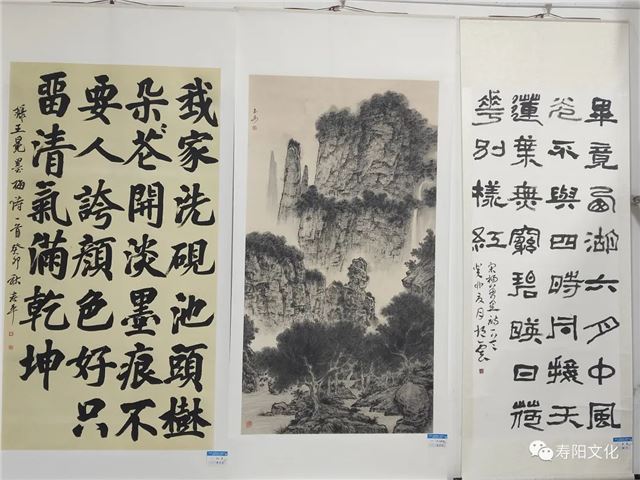 我家洗硯池頭樹
朵〻花開淡墨痕不
要人誇顏色好只
畱清氣滿乾坤
錄王冕墨梅詩一首癸卯秋
畢竟西湖六月中風
光不與四時同接天
蓮葉無窮碧映日荷
華別樣紅
宋楊萬里詩一首
癸卯夏月
寿阳文化